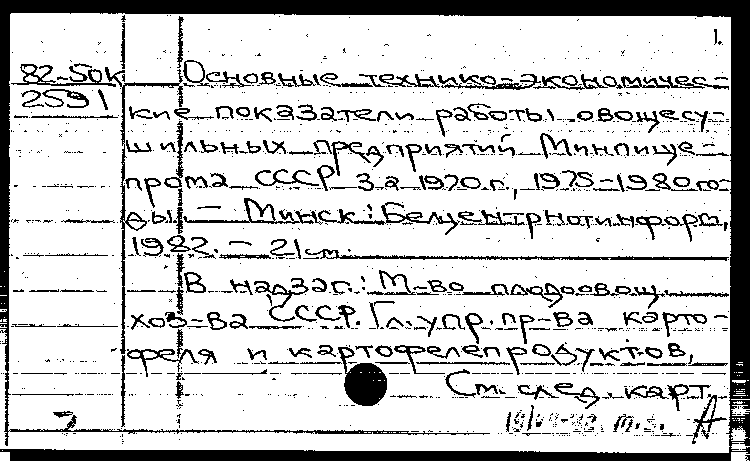 1.
82-50к Основные технико-экономичес-
2591 кие показатели работы овощесу-
шильных предприятий Минпище-
прома СССР за 1970 г., 1975-1980 го-
ды. - Минск: Белцентрнотинформ,
1982. - 21 см.
В надзаг.: М-во плодоовощ.
хоз-ва СССР. Гл. упр. пр-ва карто-
феля и картофелепродуктов,
См. след. карт.
т.з. А